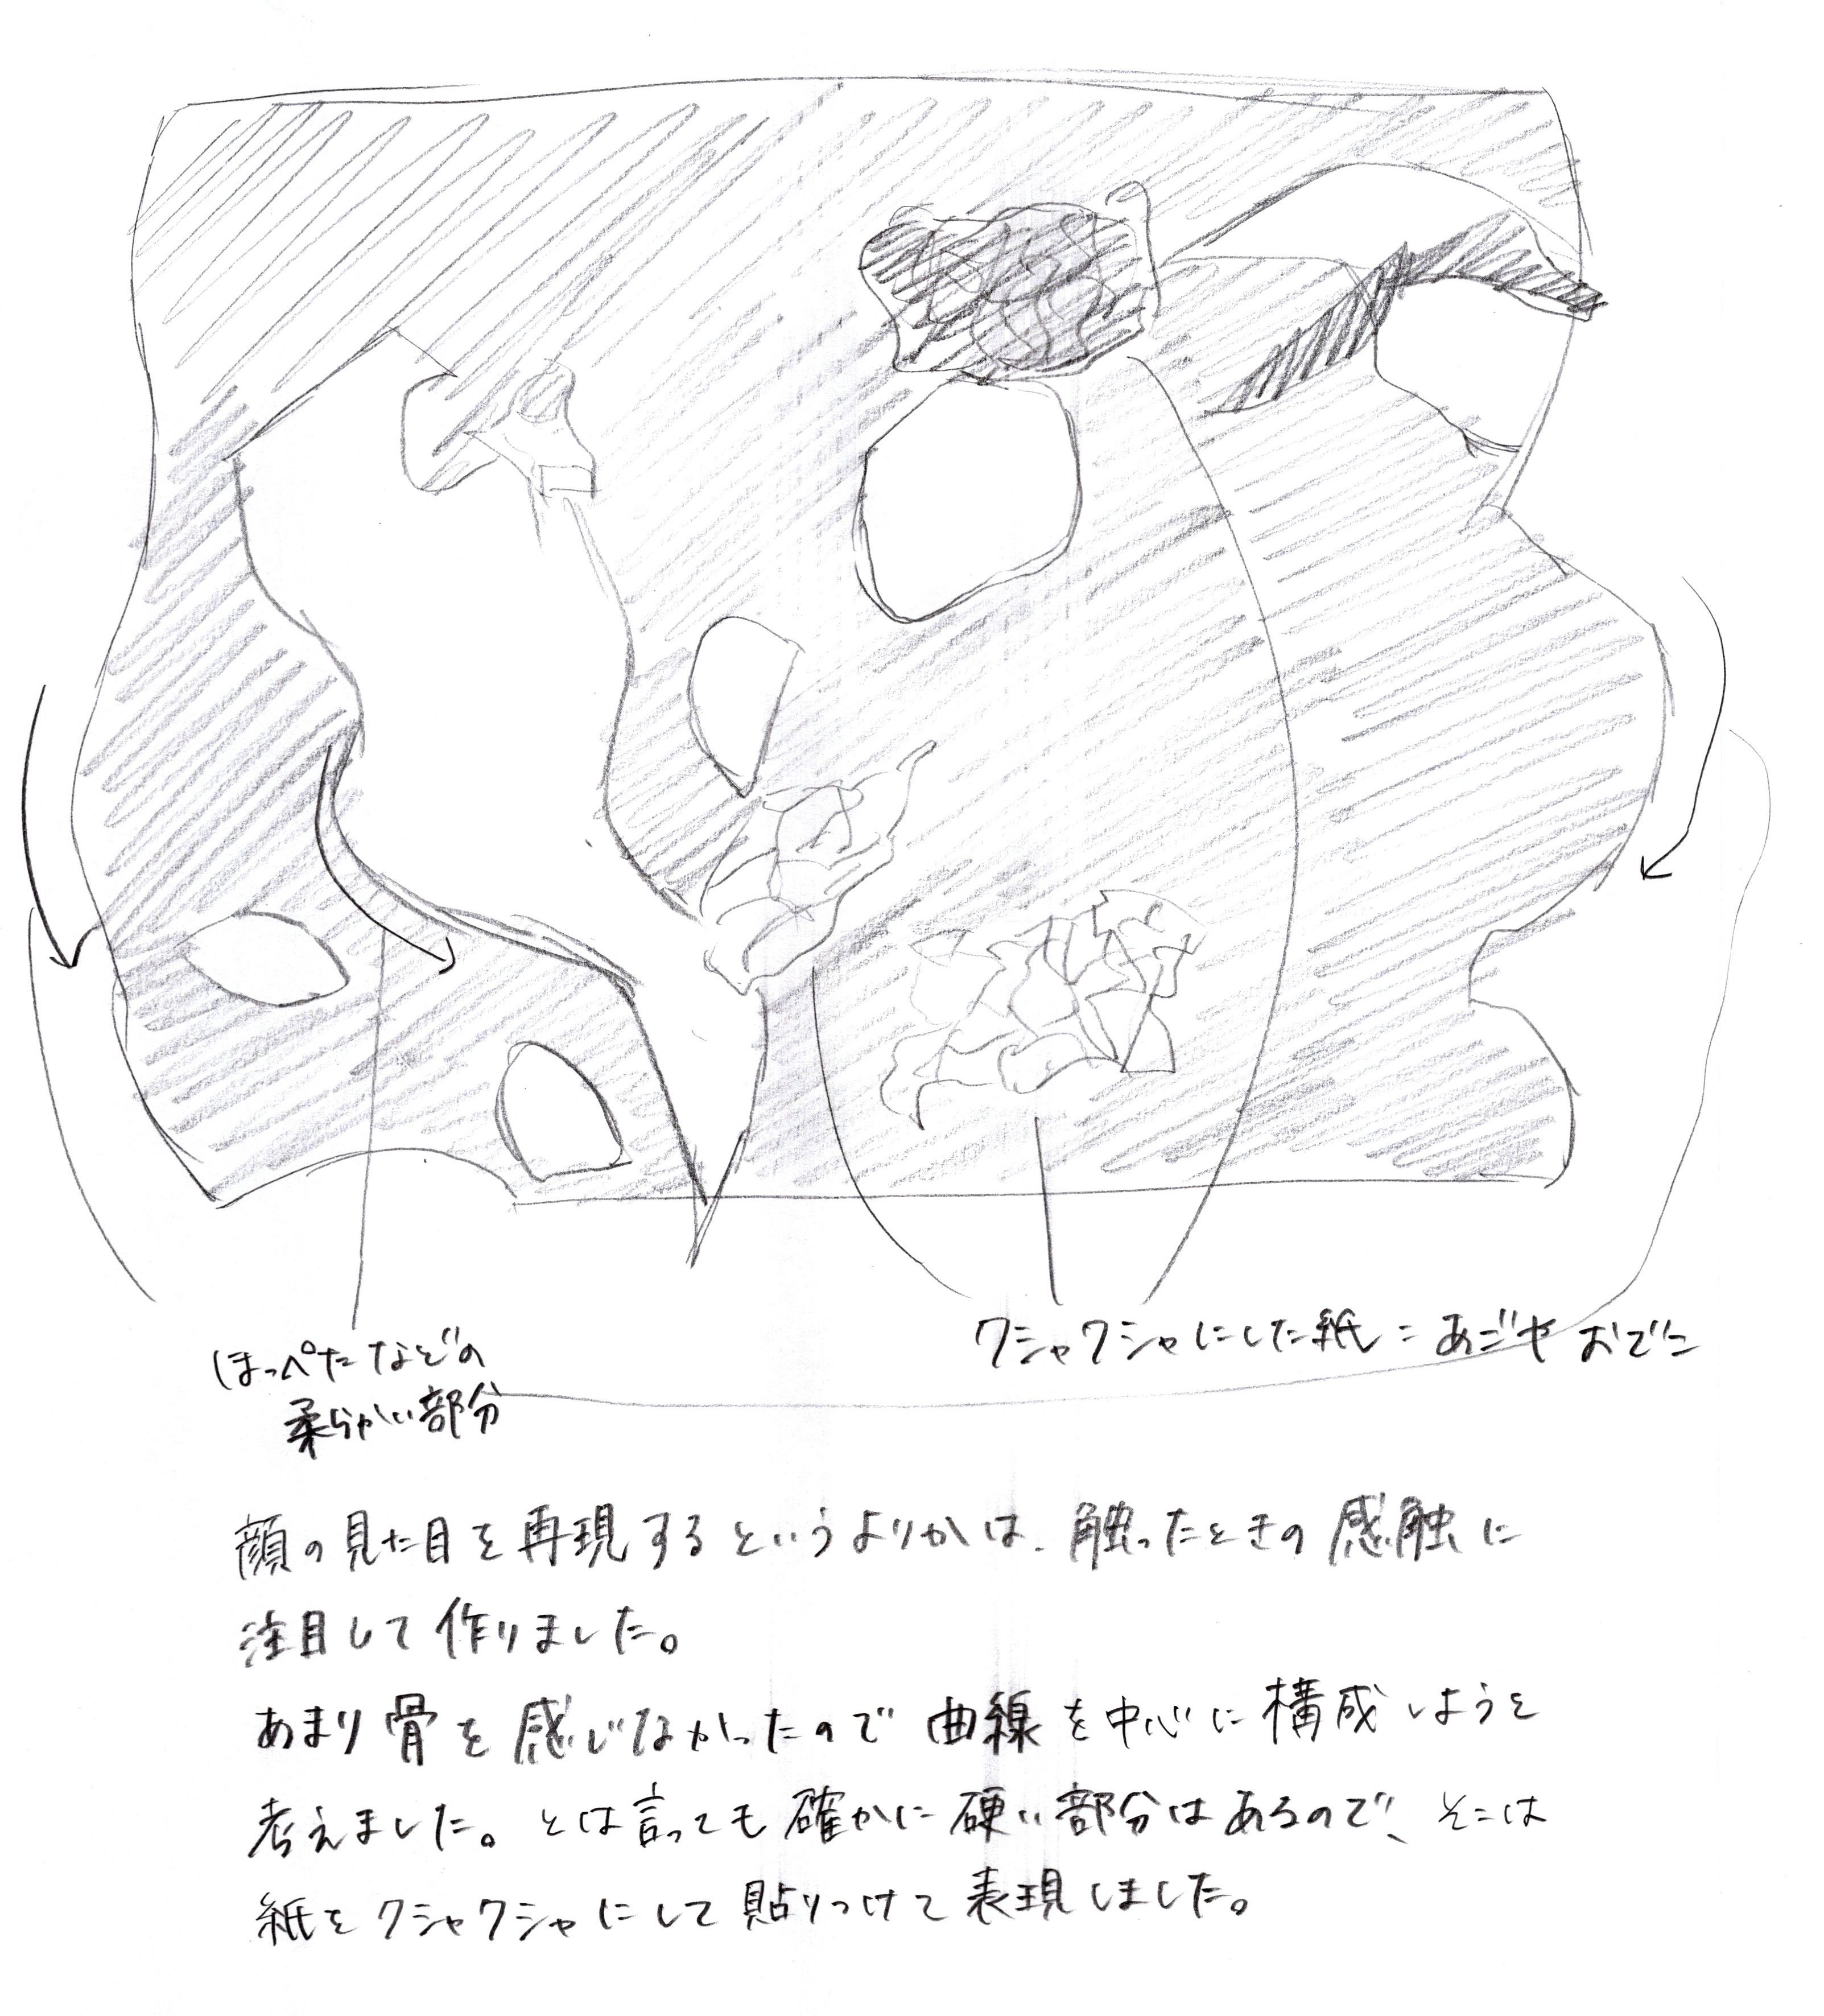 ほっぺたなどの
柔らかい部分
クシャクシャにした紙=あごやおでこ
顔の見た目を再現するというよりかは、触ったときの感触に
注目して作りました。
あまり骨を感じなかったので曲線を中心に構成しようと
考えました。とは言っても確かに硬い部分はあるので、そこは
紙をクシャクシャにして貼りつけて表現しました。